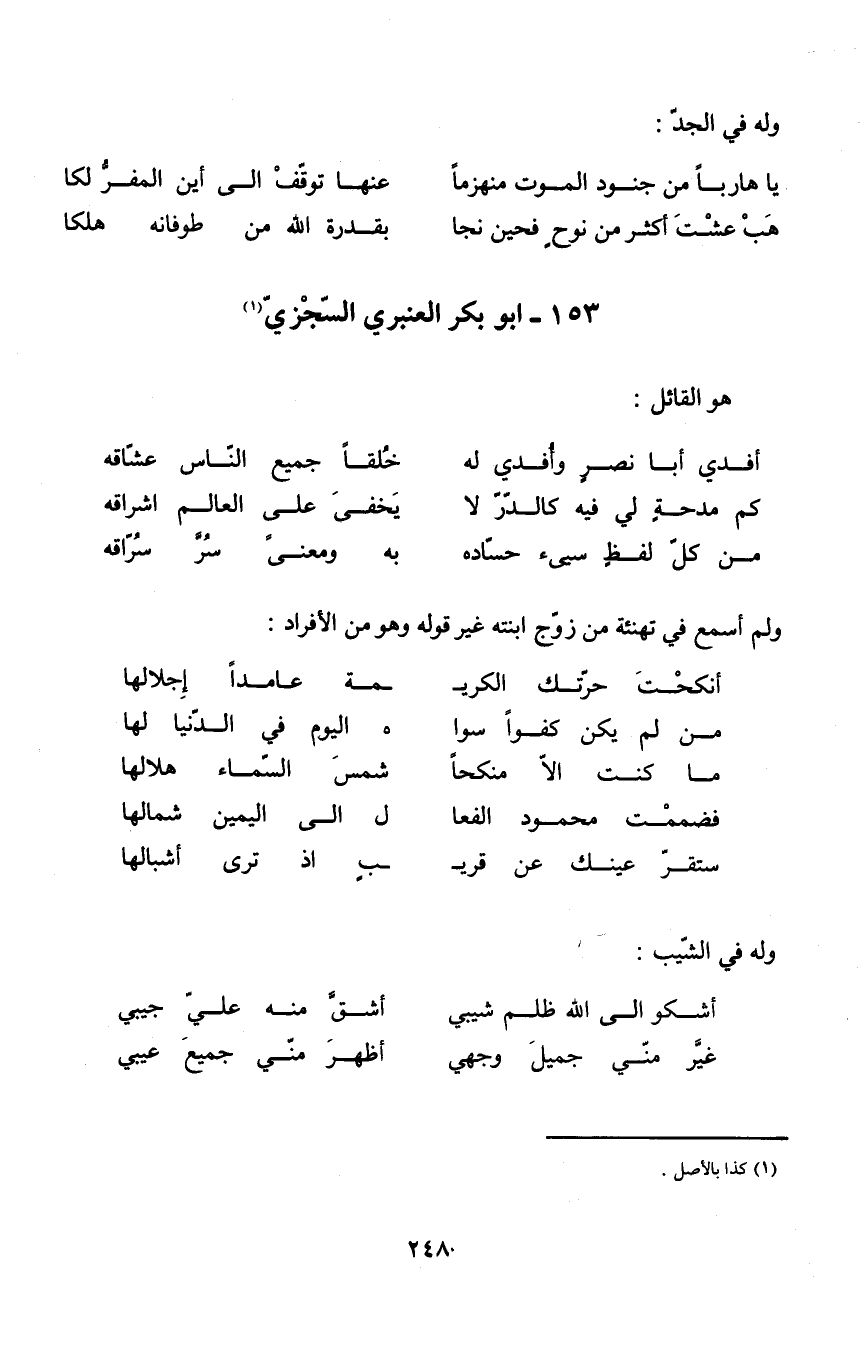 وله في الجدّ :
يا هاربـاً من جنـود المـوت منهزماً عنهـا توقّفْ الـى أين المفـرُّ لكا
هَبْ عشْـتَ أكثـر من نوحٍ فحين نجا بقـدرة الله من طوفانه هلكا
١٥٣ - ابو بكر العنبري السّجْزيّ(١)
هو القائل :
أفـدي أبـا نصـرٍ وأُفـدي له خُلقـاً جميع النّـاس عشّاقه
كم مدحـةٍ لي فيه كالـدّرّ لا يَخفـىَ علـى العالـم اشراقه
مـن كلّ لفـظٍ سيىء حسّاده به ومعنـىً سُرَّ سُرّاقه
ولم أسمع في تهنئة من زوّج ابنته غير قوله وهو من الأفراد :
أنكحْـتَ حرّتـك الكريـ ـمـة عامـداً إجلالها
مـن لم يكن كفـواً سوا ه اليوم في الـدّنيا لها
مـا كنـت الاّ منكحاً شمسَ السّمـاء هلالها
فضممْـت محمـود الفعا ل الـى اليمين شمالها
ستقـرّ عينـك عن قريـ ـبٍ اذ ترى أشبالها
وله في الشّيب :
أشـكو الـى الله ظلـم شيبي أشـقَّ منـه علـيّ جيبي
غيَّر منّـي جميلَ وجهي أظهـرَ منّـي جميعَ عيبي
(١) كذا بالأصل .
٢٤٨٠